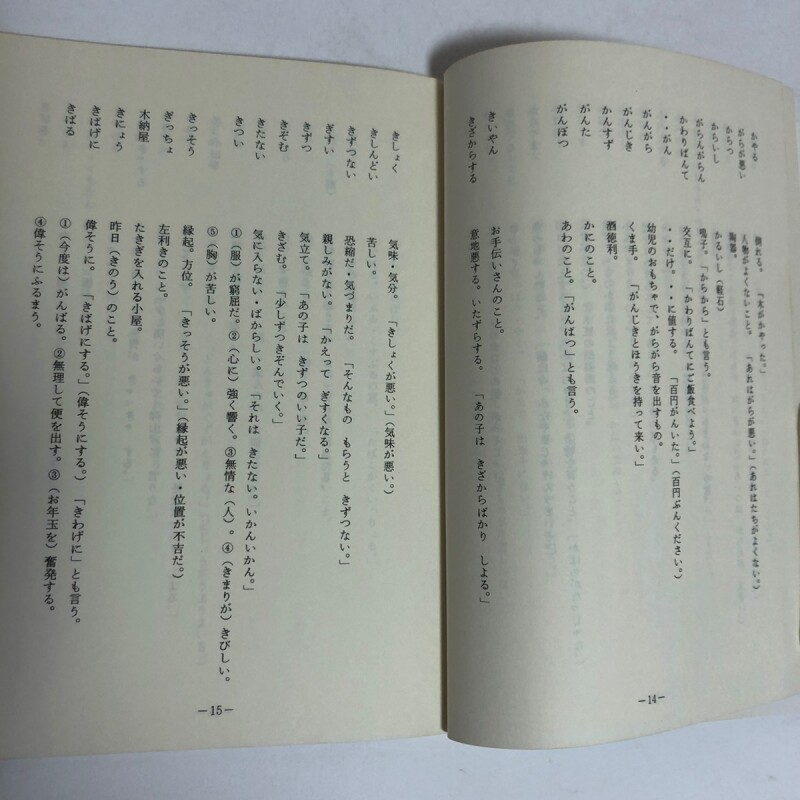 かやる　倒れる。「木がかやった。」
がらが悪い　人物がよくないこと。「あれはがらが悪い。」（あれはたちがよくない。）
からつ　陶器。
からいし　かるいし（軽石）
がらんがらん　鳴子。「からから」とも言う。
かわりばんて　交互に。「かわりばんてにご飯食べよう。」
・・がん　・・だけ。・・に値する。「百円がんいた。」（百円ぶんください。）
がんがら　幼児のおもちゃで、がらがら音を出すもの。
がんじき　くま手。「がんじきとほうきを持って来い。」
かんすず　酒徳利。
がんた　かにのこと。
がんぼつ　あわのこと。「がんばつ」とも言う。
きいやん　お手伝いさんのこと。
きざからする　意地悪する。いたずらする。「あの子は　きざからばかり　しよる。」
―14―
きしょく　気味・気分。「きしょくが悪い。」（気味が悪い。）
きしんどい　苦しい。
きずつない　恐縮だ・気づまりだ。「そんなもの　もらうと　きずつない。」
ぎすい　親しみがない。「かえって　ぎすくなる。」
きずつ　気立て。「あの子は　きずつのいい子だ。」
きぞむ　きざむ。「少しずつきぞんでいく。」
きたない　気に入らない・ばからしい。「それは　きたない。いかんいかん。」
きつい　①（服）が窮屈だ。②（心に）強く響く。③無情な（人）。④（きまりが）きびしい。
⑤（胸）が苦しい。
きっそう　縁起。方位。「きっそうが悪い。」（縁起が悪い・位置が不吉だ。）
ぎっちょ　左利きのこと。
木納屋　たきぎを入れる小屋。
きにょう　昨日（きのう）のこと。
きばげに　偉そうに。「きばげにする。」（偉そうにする。）「きわげに」とも言う。
きばる　①（今度は）がんばる。②無理して便を出す。③（お年玉を）奮発する。
④偉そうにふるまう。
―15―